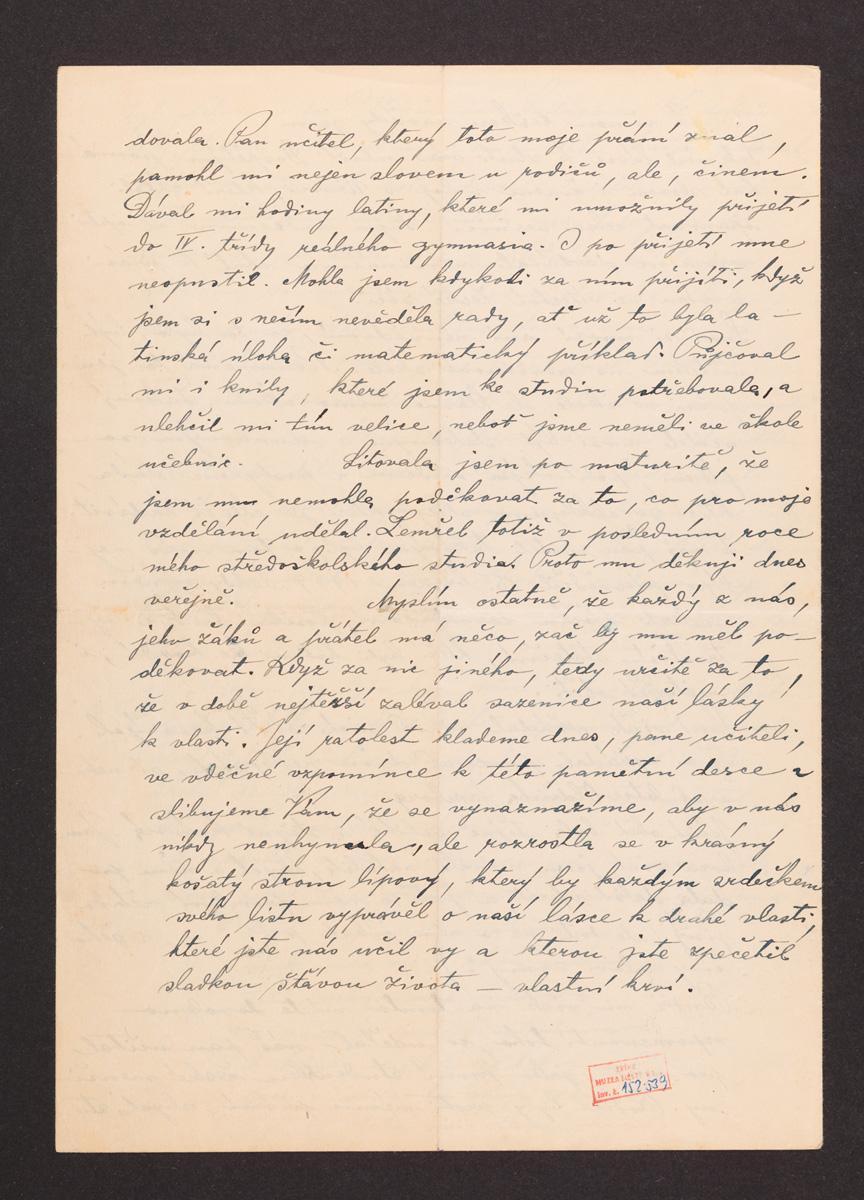 dovala. Pan učitel, který toto moje přání znal,
pamohl mi nejen slovem u rodičů, ale, činem.
Dával mi hodiny latiny, které mi umožnily přijetí
do IV. třídy reálného gymnasia. I po přijetí mne
neopustil. Mohla jsem kdykoli za ním přijíti, když
jsem si s nečím nevěděla rady, ať už to byla la-
tinská úloha či matematický příklad. Půjčoval
mi i knihy, které jsem ke studiu potřebovala, a
ulehčil mi tím velice, neboť jsme neměli ve škole
učebnic. Litovala jsem po maturitě, že
jsem mu nemohla poděkovat za to, co pro moje
vzdělání udělal. Zemřel totiž v posledním roce
mého středoškolského studia. Proto mu děkuji dnes
veřejně. Myslím ostatně, že každý z nás,
jeho žáků a přátel má něco, zač by mu měl po-
děkovat. Když za nic jiného, tedy určitě za to,
že v době nejtěžší zaléval sazenice naší lásky
k vlasti. Její ratolest klademe dnes, pane učiteli,
ve vděčné vzpomínce k této pamětní desce a
slibujeme Vám, že se vynaznažíme, aby v nás
nikdy neuhynula, ale rozrostla se v krásný
košatý strom lípový, který by každým srdečkem
svého listu vyprávěl o naší lásce k drahé vlasti,
které jste nás učil vy a kterou jste zpečetil
sladkou šťávou života — vlastní krví.
MUZEA
inv. č. 152.539